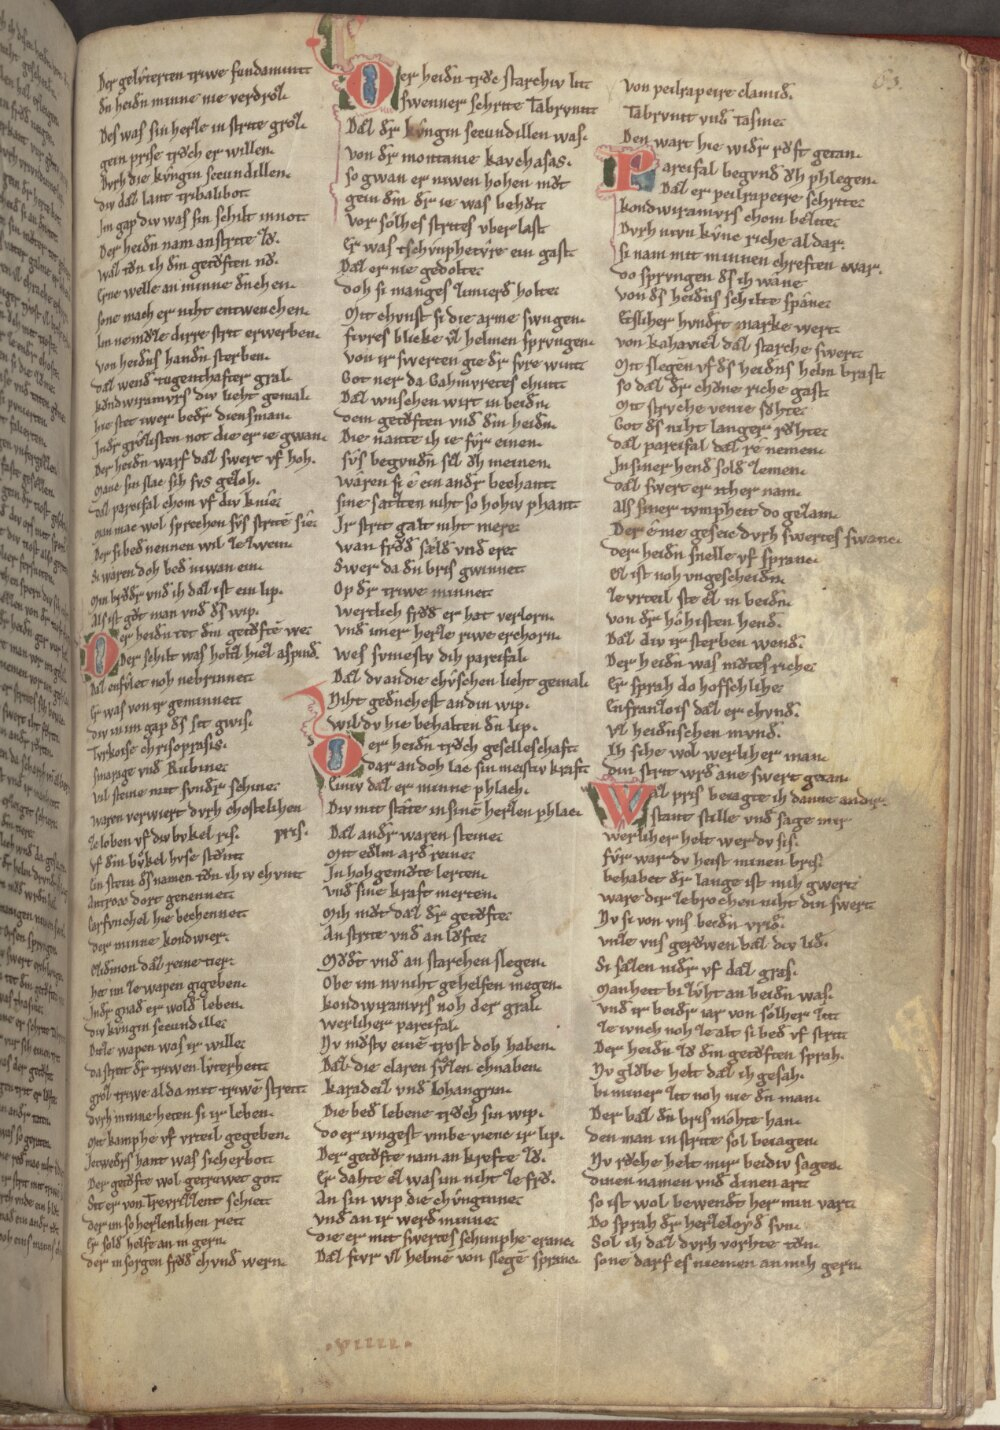 Der gelv̊terten triwe fundamint
Dn heidn minne nie verdroz.
Des was sin herze in strite groz.
gein prise trůch er willen.
Dvrh die kv́ngin secundillen.
div daz lant tribalibot
Im gap div was sin schilt in not.
Der heidn nam an strite zů.
waz tůn ih dem getǒften nv.
Ern welle an minne denchen.
sone mach er niht entwenchen.
Im newelle dirre strit erwerben.
von heidns handen sterben.
daz wende tugenthafter gral.
kondwiramvrs div lieht gemal.
hie stet iwer beder dienstman.
In der grǒzisten not die er ie gwan.
Der heidn warf daz swert vf hoh.
manec sin slac sih svs gezoh.
daz parcifal chom vf div knie.
man mac wol sprechen svs striten sie.
Der si bed nennen wil ze zwein.
si waren doh bed niwan ein.
min brůder vnd ih daz ist ein lip.
Als ist gůt man vnd des wip.
Der heiden tet dem getǒften we.
Der schilt was holtz hiez aspinde.
Daz enfvlet noh nebrinnet
Er was von ir geminnet
div in im gap des sit gwis.
Tvrkoise chrisoprasis.
Smarage vnd Rubine.
vil steine mit svnder schine.
waren verwiert dvrh chostelichen
ze loben vf div bvkel ris. pris.
vf dem bv́kel hvse stůnt
Ein stein des namen tůn ih iv chvnt
Antrax dort genennet
Carfvnchel hie bechennet
der minne kondwier.
Ecidimon daz reine tier.
het im ze wapen gigeben.
In der gnad er wold leben.
div kv́ngin secundille.
Ditze wapen was ir wille.
da streit der triwen lv́terheit
groz triwe alda mit triwē streit
dvrh minne heten si ir leben.
Mit kamphe vf vrteil gegeben.
Ietweders hant was sicherbot.
Der getǒfte wol getruwet got.
Sit er von Trevrizent schiet
der im so herzenlichen riet
Er sold helfe an in gern.
der in sorgen frǒd chvnd wern.
Der heidn trůc starchiv lit
swenner schrite Tabrvnit
Daz der kv́ngin secundillen was.
Von der montanie kavchasas.
so gwan er niwen hohen můt
gein dem der ie was behůt
vor solhes strites vberlast
Er was tschvnphetv́re ein gast.
Daz er nie gedolte.
doh si manges zimierd holte.
Mit chvnst si die arme swngen.
fiwres blicke vz helmen sprvngen.
von ir swerten gie der svre wint
Got ner da Gahmvretes chint
Daz wnschen wirt in beiden.
dem getǒften vnd dem heiden.
Die nante ih ie fv́r einen.
svs begvnden siz ǒh meinen.
waren si ē ein ander bechant.
sine satzten niht so hohiv phant
Ir strit galt niht mere.
wan frǒd sælde vnd ere.
Swer da den bris gwinnet.
Op der triwe minnet.
werltlich frǒd er hat verlorn.
vnd imer herze riwe erchorn.
wes svmestv dih parcifal.
Daz dv an die chvschen lieht gemal.
Niht gedenchest an din wip.
wil dv hie behalten den lip.
Der heidn trůch geselleschaft.
dar an doh lac sin meistiv kraft
Einiv daz er minne phlach.
Div mit stæte in sinē herzen phlac.
Daz ander waren steine.
Mit edlm ard reine.
In hohgemůte lerten.
vnd sine kraft merten.
Mih můt daz der getǒfte.
An strite vnd an lǒfte.
Můdet vnd an starchen slegen.
Obe im nv niht gehelfen megen.
kondwiramvrs noh der gral.
werlicher parcifal.
Nv můstv einē trost doh haben.
Daz die claren sv́zen chnaben.
karadeiz vnd lohangrin.
Die bed lebene trůch sin wip.
do er ivngest vmbe viene ir lip.
Der getǒfte nam an krefte zů.
Er dahte ez was im niht ze frů.
An sin wip die chv́nginne.
vnd an ir werd minne.
die er mit swertes schimphe eranc.
Daz fivr vz helmē von slegē spranc.
von peilrapeire clamide.
Tabrvnit vnd Tasme.
Den wart hie wider růft getan.
Parcifal begvnd ǒh phlegen.
Daz er peilrapeire schrite.
kondwiramvrs chom bezite.
Dvrh nivn kv́ncriche al dar.
si nam mit minnen chreften war.
do sprvngen des ih wæne
von des heidens schilte spæne.
Etslicher hvndert marke wert
von kahaviez daz starche swert
Mit slegen vf des heidens helm brast
so daz der chůne riche gast.
Mit strvche venie sůhte.
Got des niht langer růhte.
daz parcifal daz rē nemen.
In siner hend sold zemen.
daz swert er ither nam.
Als siner tvmpheit do gezam.
Der ē nie geseic dvrh swertes swanc.
der heidn snelle vf spranc.
Ez ist noh vngescheiden.
ze vrteil ste ez in beiden.
von der hohisten hend.
Daz div ir sterben wende.
Der heidn was můtes riche.
Er sprah do hofschliche.
En franzois daz er chvnd.
vz heidnischen mvnd.
Ih sihe wol werliher man.
din strit wrd ane swert getan.
Waz pris beiagte ih danne an dir.
stant stille vnd sage mir
werliher helt wer dv sis.
fv́r war dv hetst minen bris.
behabet der lange ist mih gwert.
ware dir zebrochen niht din swert.
Nv si von vns beiden vride.
vnze vns gerůwen baz div lide.
Si sazen nider vf daz gras.
Manheit bi zvht an beiden was.
vnd ir beider iar von solher zit.
ze ivnch noh ze alt si bed vf strit.
Der heidn zů dem getǒften sprah.
Nv glǒbe helt daz ih gesah.
bi miner zit noh nie den man.
Der baz den bris mohte han.
den man in strite sol beiagen.
Nv růche helt mir beidiv sagen.
dinen namen vnd dinen art
so ist wol bewendt her min vart.
Do sprah der herzeloyde svn.
Sol ih daz dvrh vorhte tůn.
sone darf es niemen an mih gern.
.viiii.
63.